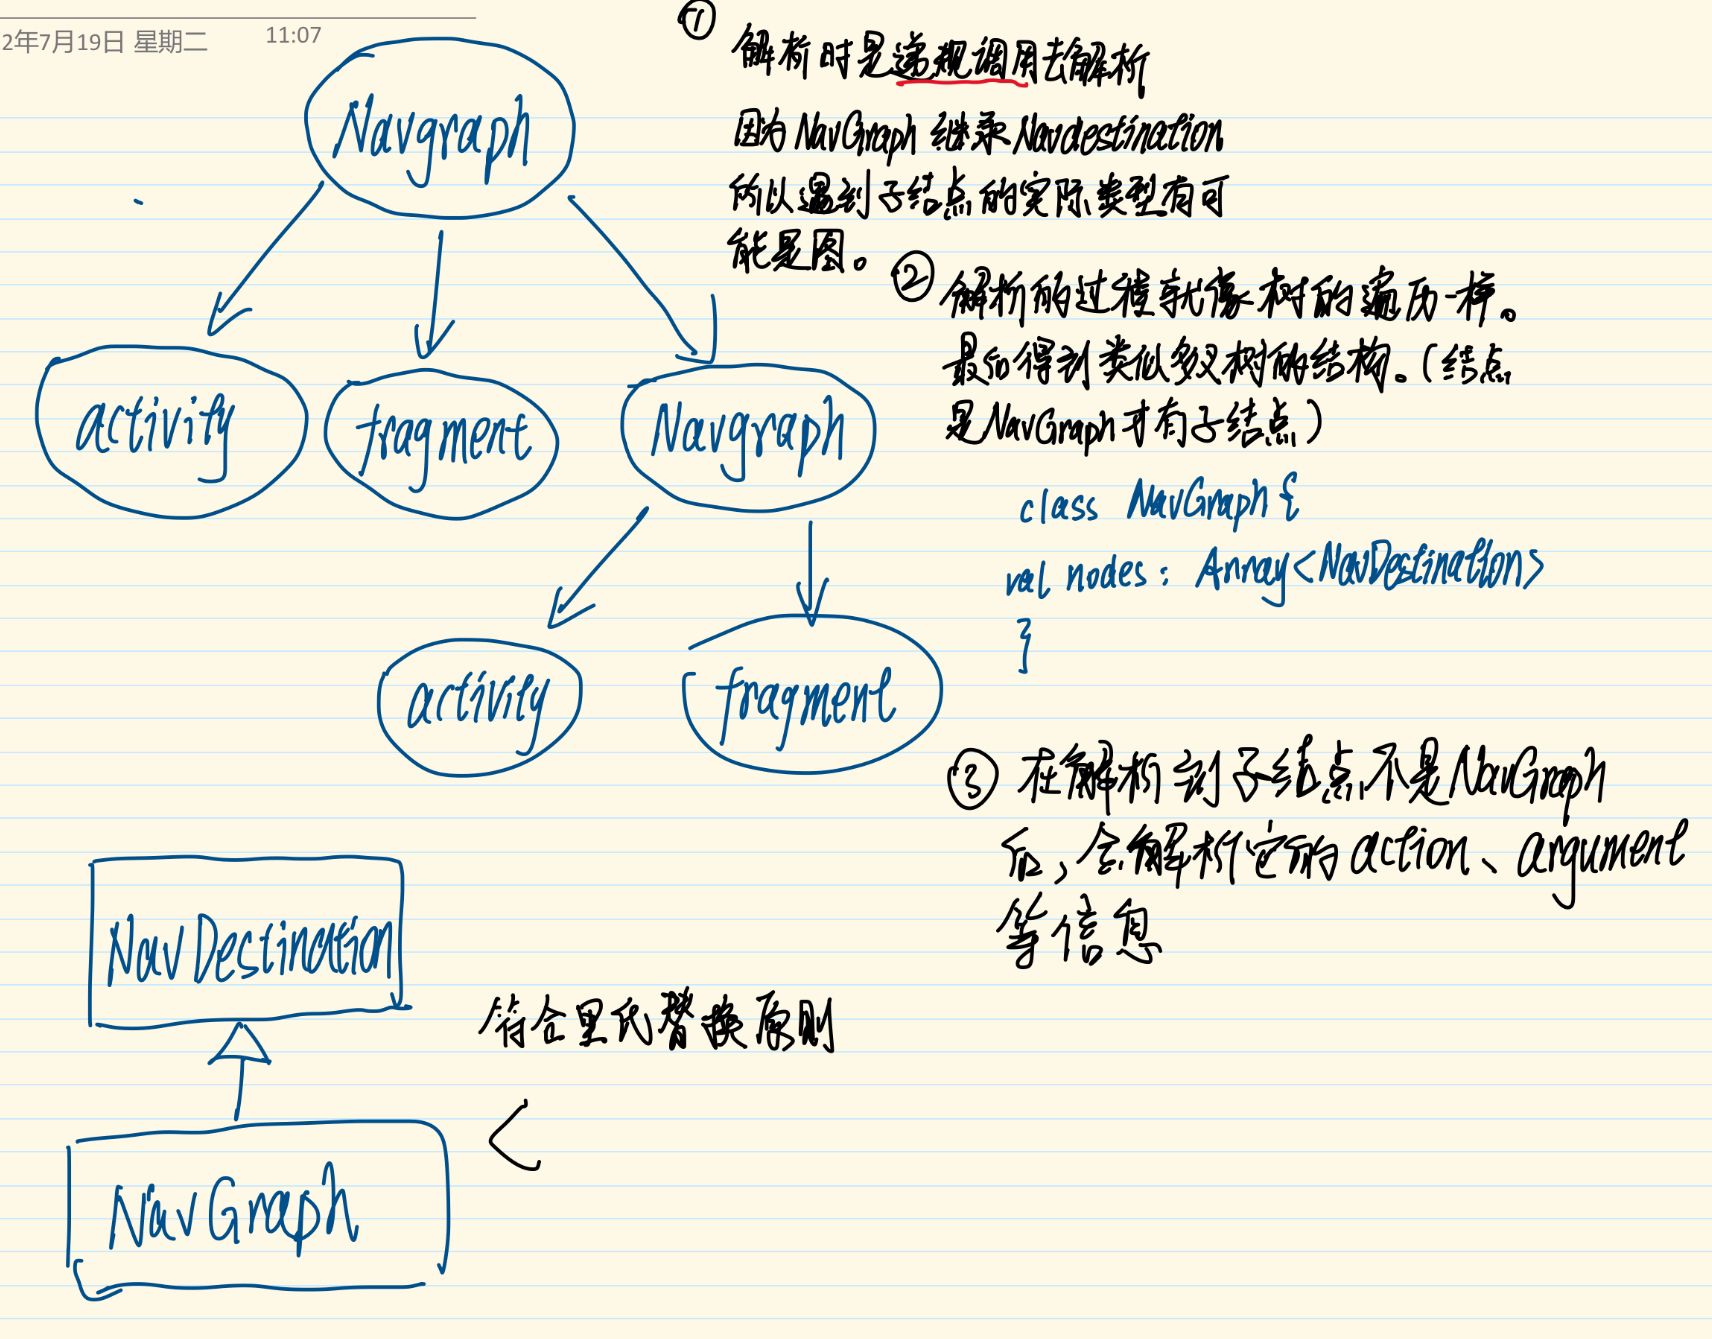 2年7月19日 星期二
11:07
Navgraph
activity
fragment
Navgraph
activity
fragment
①
解析时是递规调用去解析
因为NavGraph继承Navdestination
所以遇到子结点的实际类型有可
能是图。
②
解析的过程就像树的遍历一样。
最后得到类似多叉树的结构。(结点
是NavGraph才有子结点)
class NavGraph {
val nodes : Array<NavDestination>
}
③ 在解析到子结点不是NavGraph
后,会解析它的action、argument
等信息
NavDestination
符合里氏替换原则
NavGraph